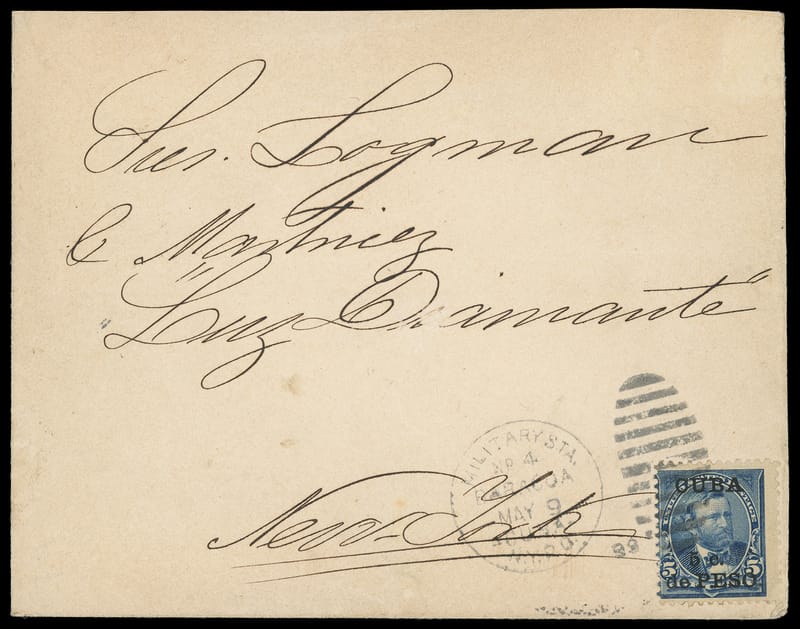 Sres. Logman
& Martinez
"Luz Diamante"
New-York
MILITARY STA.
No 4
BARACOA
MAY 9
N.Y.P.O.
99
CUBA
5 c.
de PESO
5 5